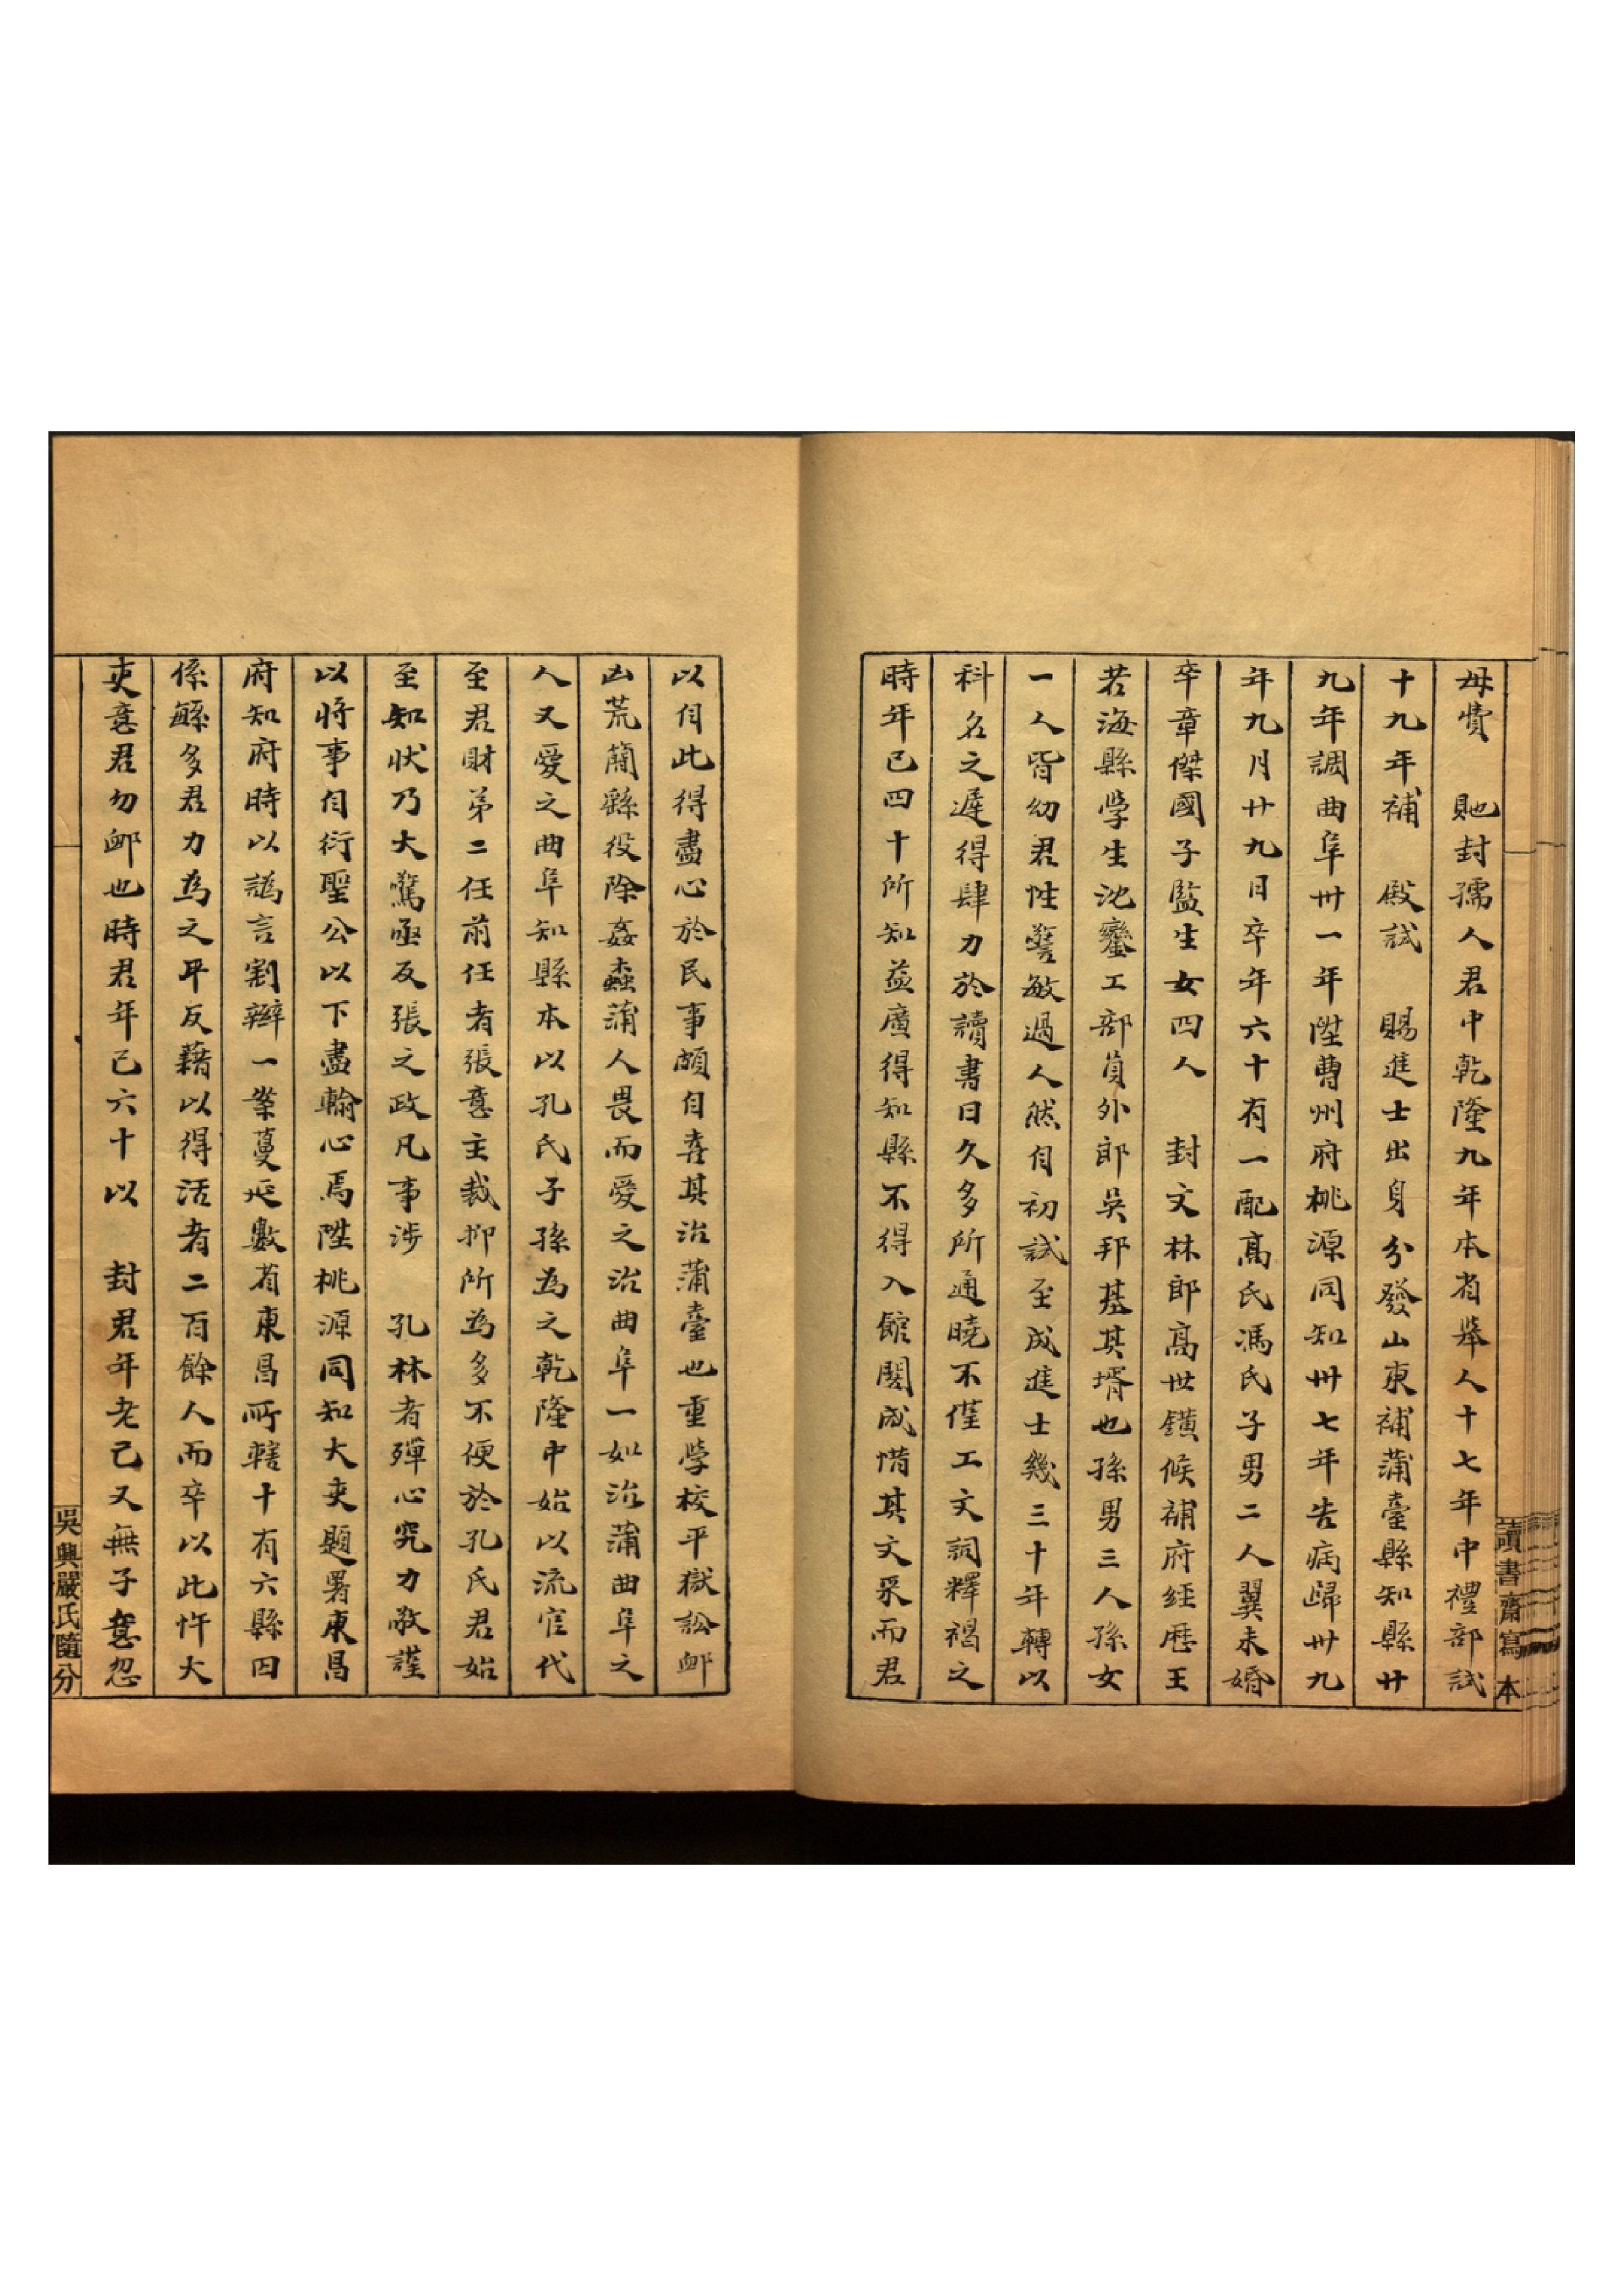 母費　貤封孺人君中乾隆九年本省舉人十七年中禮部試
十九年補　殿試　賜進士出身分發山東補蒲臺縣知縣廿
九年調曲阜卅一年陞曹州府桃源同知卅七年告病歸卅九
年九月廿九日卒年六十有一配高氏馮氏子男二人翼未婚
卒章傑國子監生女四人　封文林郎高世鐄候補府經歷王
若海縣學生沈鑾工部員外郎吳邦基其壻也孫男三人孫女
一人皆幼君性警敏過人然自初試至成進士幾三十年轉以
科名之遲得肆力於讀書日久多所通曉不僅工文詞釋褐之
時年已四十所知益廣得知縣不得入館閣咸惜其文采而君
讀書齋寫本
以自此得盡心於民事頗自喜其治蒲臺也重學校平獄訟卹
凶荒蕳繇役除姦蠹蒲人畏而愛之治曲阜一如治蒲曲阜之
人又愛之曲阜知縣本以孔氏子孫為之乾隆中始以流官代
至君財第二任前任者張意主裁抑所為多不便於孔氏君始
至知狀乃大驚亟反張之政凡事涉　孔林者殫心究力敬謹
以將事自衍聖公以下盡輸心焉陞桃源同知大吏題署東昌
府知府時以譌言割辮一案蔓延數省東昌所轄十有六縣四
係繇多君力為之平反藉以得活者二百餘人而卒以此忤大
吏意君勿卹也時君年已六十以　封君年老己又無子意忽
吳興嚴氏隨分